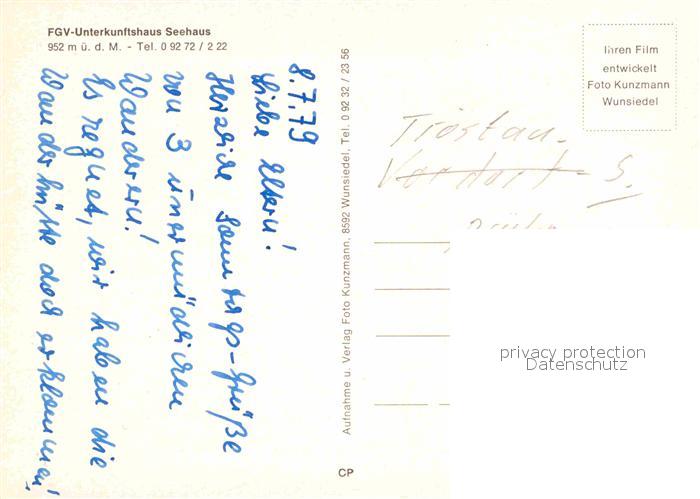 FGV-Unterkunftshaus Seehaus
952 m ü. d. M. - Tel. 0 92 72 / 2 22
8.7.79
Liebe Eltern!
Herzliche Sonntags-Grüße
von 3 unermüdlichen
Wanderern!
Es regnet, wir haben die
Wanderhütte doch erklommen!
Aufnahme u. Verlag Foto Kunzmann, 8592 Wunsiedel, Tel. 0 92 32 / 23 56
CP
Ihren Film
entwickelt
Foto Kunzmann
Wunsiedel
Tröstau.
privacy protection
Datenschutz